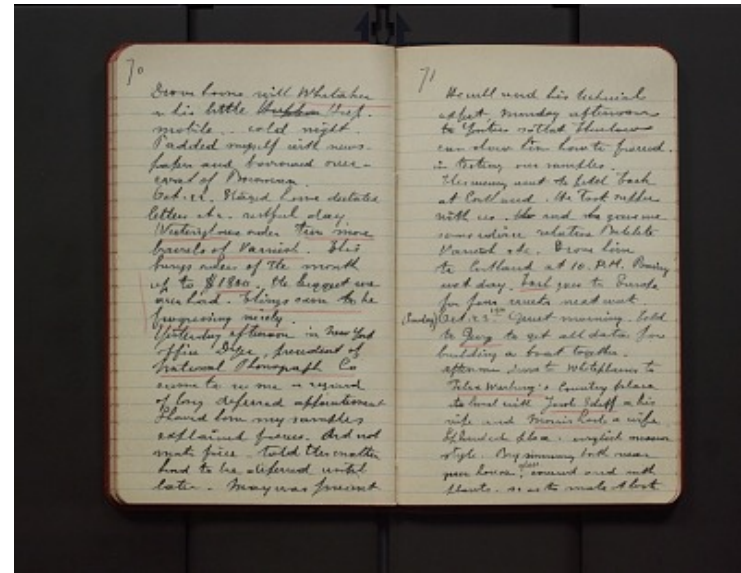 70
Drove home with Whitaker
in his little Hupmo
mobile. - cold night.
Padded myself with news-
paper and borrowed over-
coat of Bowman.
Oct. 22. Stayed home dictated
letters etc. restful day
Westinghouse order two more
barrels of Varnish. This
brings orders of the month
up to $1800. the biggest we
ever had. Things seem to be
progressing nicely.
Yesterday afternoon in New York
office Dyer, president of
National Phonograph Co
came to see me in regard
of long deferred appointment
Showed him my samples
explained process. Did not
make price - told the matter
had to be deferred until
later. May was present
71
He will send his technical
expert, Monday afternoon
to Yonkers so that Thurlow
can show him how to proceed
in testing our samples.
at Cortlandt. He took supper
with us. and he gave me
some advice relative Bakelite
Varnish etc. Drove him
to Cortlandt at 10. P.M.
next day. goes to Europe
for four weeks next week.
(Sunday) Oct. 23. Quiet morning. told
to get all data for
building a boat together.
afternoon drove to Whiteplains to
Felix Warburg's Country place
to meet with Jacob Schiff & his
wife and Morris Loeb & wife.
Splendid place. english manor
style. Big swimming bath near
green house, glass covered and with
plants. so as to make it look